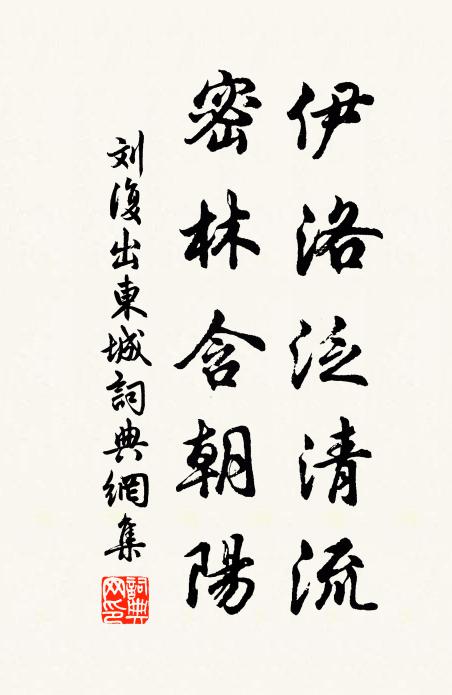 伊洛泛清流
密林含朝陽
刘復出東城詞典網集
詞典网印